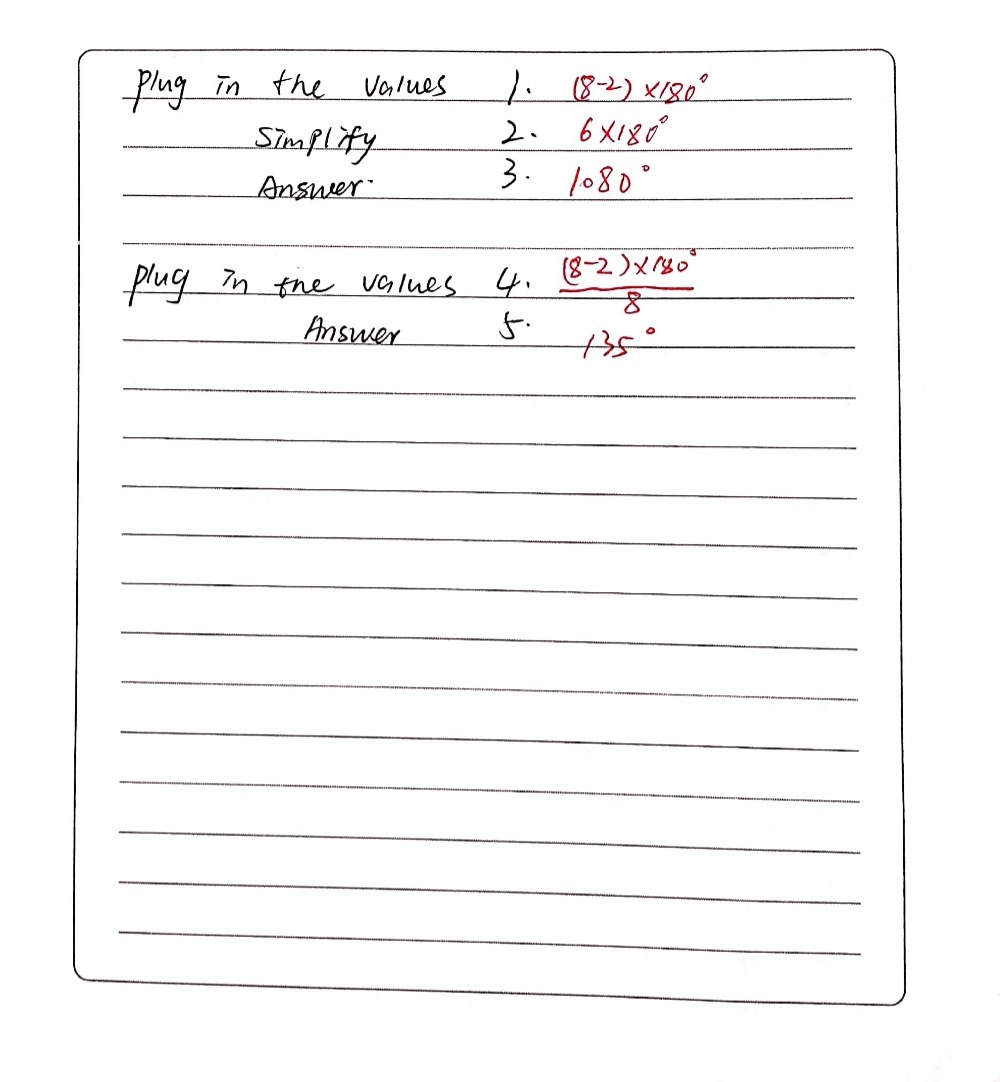 Plug in the values 1. (8-2)×180°
Simplify 2. 6×180°
Answer. 3. 1080°
Plug in the values 4. (8-2)×180°
8
Answer 5. 135°